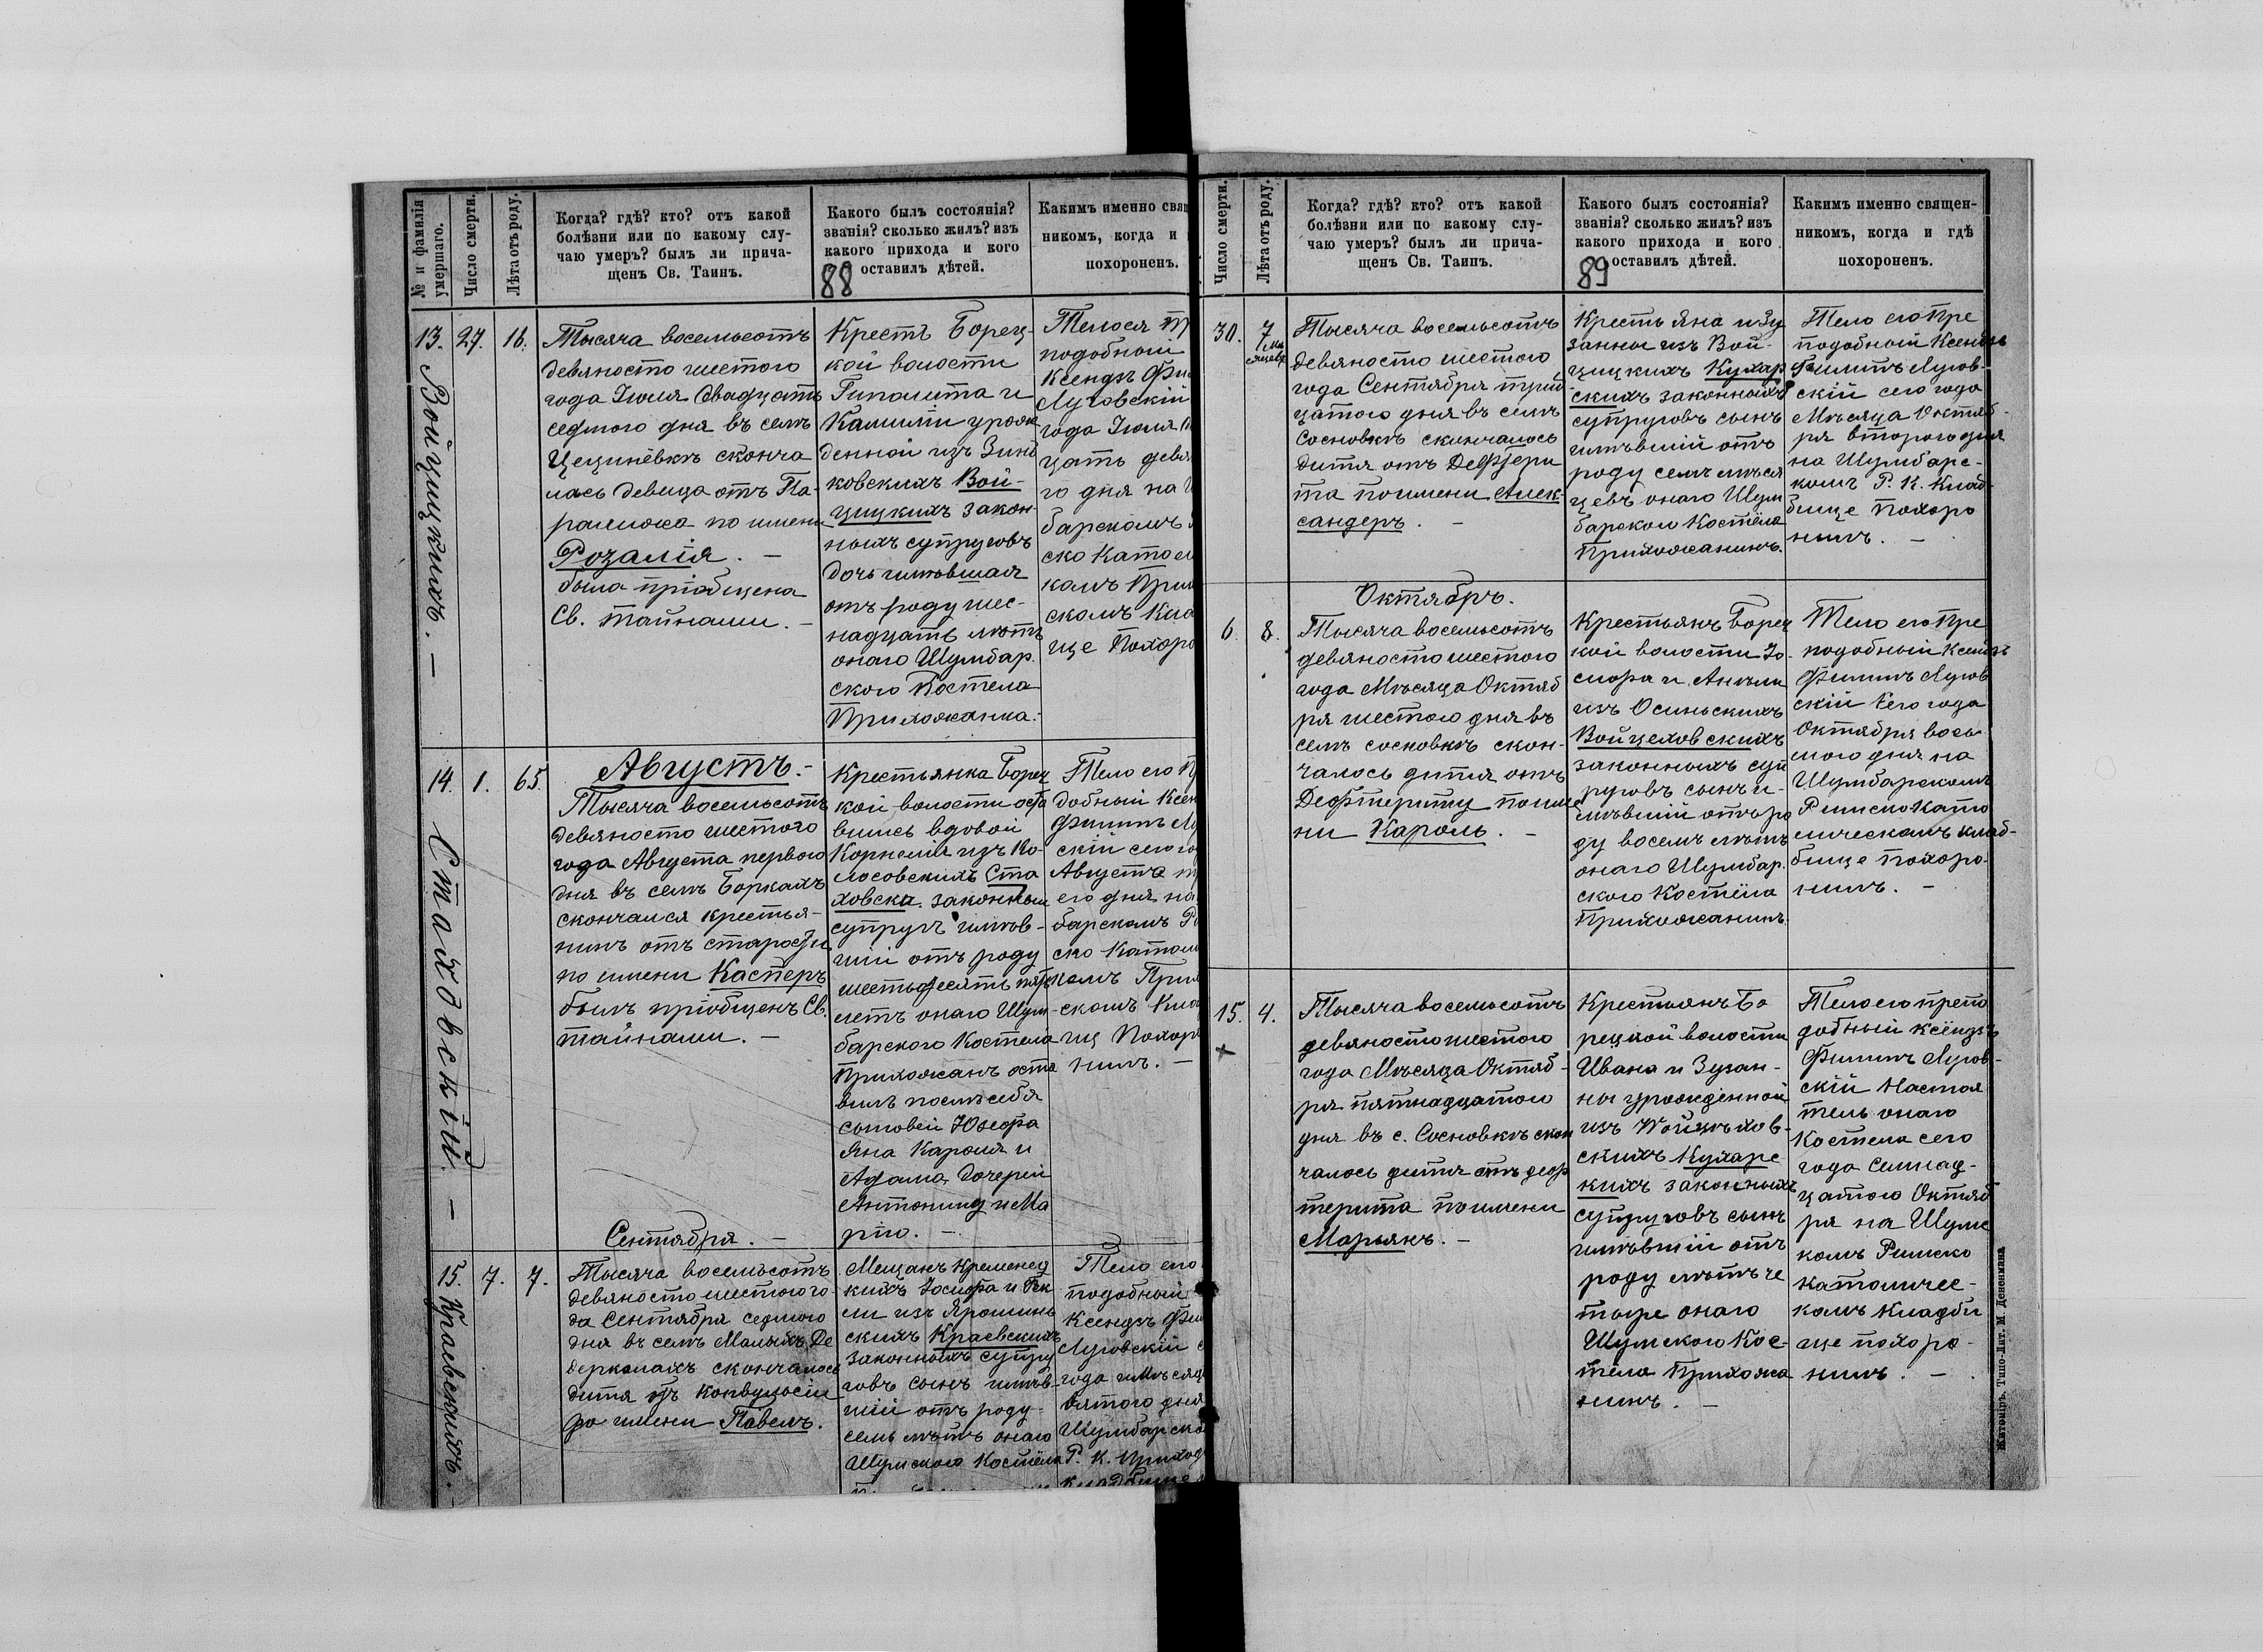 № и фамилія умершаго.
Число смерти.
Лѣта отъ роду.
Когда? гдѣ? кто? отъ какой
болѣзни или по какому слу-
чаю умеръ? былъ ли прича-
щенъ Св. Таинъ.
Какого былъ состоянія?
званія? сколько жилъ? изъ
какого прихода и кого
оставилъ дѣтей.
88
Какимъ именно свящ
никомъ, когда и
похороненъ.
13.
Войцицкихъ. —
27.
16.
Тысяча восемьсотъ
девяносто шестого
года Іюля двадцать
седмого дня въ селѣ
Цециневкѣ сконча
лась девица отъ Па-
ралижа по имени
Розалія. —
была пріобщена
Св. тайнами. —
Крестъ Борец-
кой волости
Гиполита и
Камиліи урож
денной изъ Зинь
ковскихъ Вой-
цицкихъ закон-
ныхъ супруговъ
дочь имѣвшая
отъ роду шес-
надцать лѣтъ
онаго Шумбар.
ского Костела
Прихожанка.
Тело ея пр
подобный
Ксендзъ Фи
Луговскій
года Іюля
цать девя
го дня на
барскомъ
ско Катол
комъ Прих
скомъ Кла
ще Похоро
14.
Стаховскій. —
1.
65.
Августъ. -
Тысяча восемьсотъ
девяносто шестого
года Августа первого
дня въ селѣ Боркахъ
скончался крестья-
нинъ отъ старости
по имени Касперъ
былъ пріобщенъ Св.
тайнами. —
Крестьянка Борец
кой волости оста
вшись вдовой
Корнелія изъ Ко-
лосовскихъ Ста
ховска. законный
супругъ имѣв-
шій отъ роду
шестьдесятъ пять
летъ онаго Шум-
барского Костела
Прихожанъ оста
вилъ послѣ себя
сыновей Юзефа
Яна Кароля и
Адама дочерей
Антонину и Ма
рію. —
Тело его П
добный Ксен
Филипъ Лу
скій сего го
Августа т
его дня на
барскомъ Ри
ско Катол
комъ Прих
скомъ Кла
щ Похоро
нилъ. —
15.
Краевскихъ. -
7.
7.
Сентября. —
Тысяча восемьсотъ
девяносто шестого го
да Сентября седмого
дня въ селѣ Малыхъ Де
деркалахъ скончалось
дитя отъ конвульсіи
по имени Павелъ.
Мещанъ Кременец
кихъ Іосифа и Тек
ли изъ Ярошинь
скихъ Краевскихъ
законныхъ супру
говъ сынъ имѣв-
шій отъ роду
семь лѣтъ онаго
Шумского Костела
Тело его
подобный
Ксендзъ Фи
Луговскій с
года Мѣсяца
вятого дня
Шумбарско
Р. К. Приход
кладбище
Число смерти.
Лѣта отъ роду.
Когда? гдѣ? кто? отъ какой
болѣзни или по какому слу-
чаю умеръ? былъ ли прича-
щенъ Св. Таинъ.
Какого былъ состоянія?
званія? сколько жилъ? изъ
какого прихода и кого
оставилъ дѣтей.
89
Какимъ именно священ-
никомъ, когда и гдѣ
похороненъ.
30.
7
Мѣ
сяцевъ
Тысяча восемьсотъ
девяносто шестого
года Сентября трид
цатого дня въ селѣ
Сосновкѣ скончалось
дитя отъ Дефтери
та по имени Алек-
сандеръ. —
Кресть Яна и Зу
занны изъ Вой-
цицкихъ Кухар
скихъ законныхъ
супруговъ сынъ
имѣвшій отъ
роду семь мѣся
цевъ онаго Шум
барского Костела
Прихожанинъ.
Тело его Пре
подобный Ксендзъ
Филипъ Лугов-
скій сего года
Мѣсяца Октяб-
ря второго дня
на Шумбарс-
комъ Р. К. Клад-
бище Похоро
нилъ. —
6.
8.
Октябрь.
Тысяча восемьсотъ
девяносто шестого
года Мѣсяца Октяб
ря шестого дня въ
селѣ Сосновкѣ скон-
чалось дитя отъ
Дефтериту по име
ни Кароль. —
Крестьянъ Борец
кой волости Іо-
сифа и Анели
изъ Осиньскихъ
Войцеховскихъ
законныхъ суп
руговъ сынъ и-
мѣвшій отъ ро
ду восемь лѣтъ
онаго Шумбар.
ского Костела
Прихожанинъ
Тело его Пре
подобный Ксендзъ
Филипъ Лугов
скій сего года
Октября вось
мого дня на
Шумбарскомъ
Римско Като
лическомъ клад-
бище похоро-
нилъ. —
15.
+
4.
Тысяча восемьсотъ
девяносто шестого
года Мѣсяца Октяб-
ря пятнадцатого
дня въ с. Сосновкѣ скон
чалось дитя отъ деф
терита по имени
Марьянъ. —
Крестьянъ Бо
рецкой волости
Ивана и Зузан-
ны урожденной
изъ Войцѣхов-
скихъ Кухарс
кихъ законныхъ
супруговъ сынъ
имѣвшій отъ
роду лѣтъ че
тыре онаго
Шумского Кос-
тела Прихожа
нинъ. —
Тело его препо
добный ксёндзъ
Филипъ Лугов-
скій Настоя
тель онаго
Костела сего
года Семнад-
цатого Октяб
ря на Шумс
комъ Римско
католичес-
комъ Кладби
ще похоро-
нилъ. —
Житоміръ. Типо-Лит. М. Дененмана